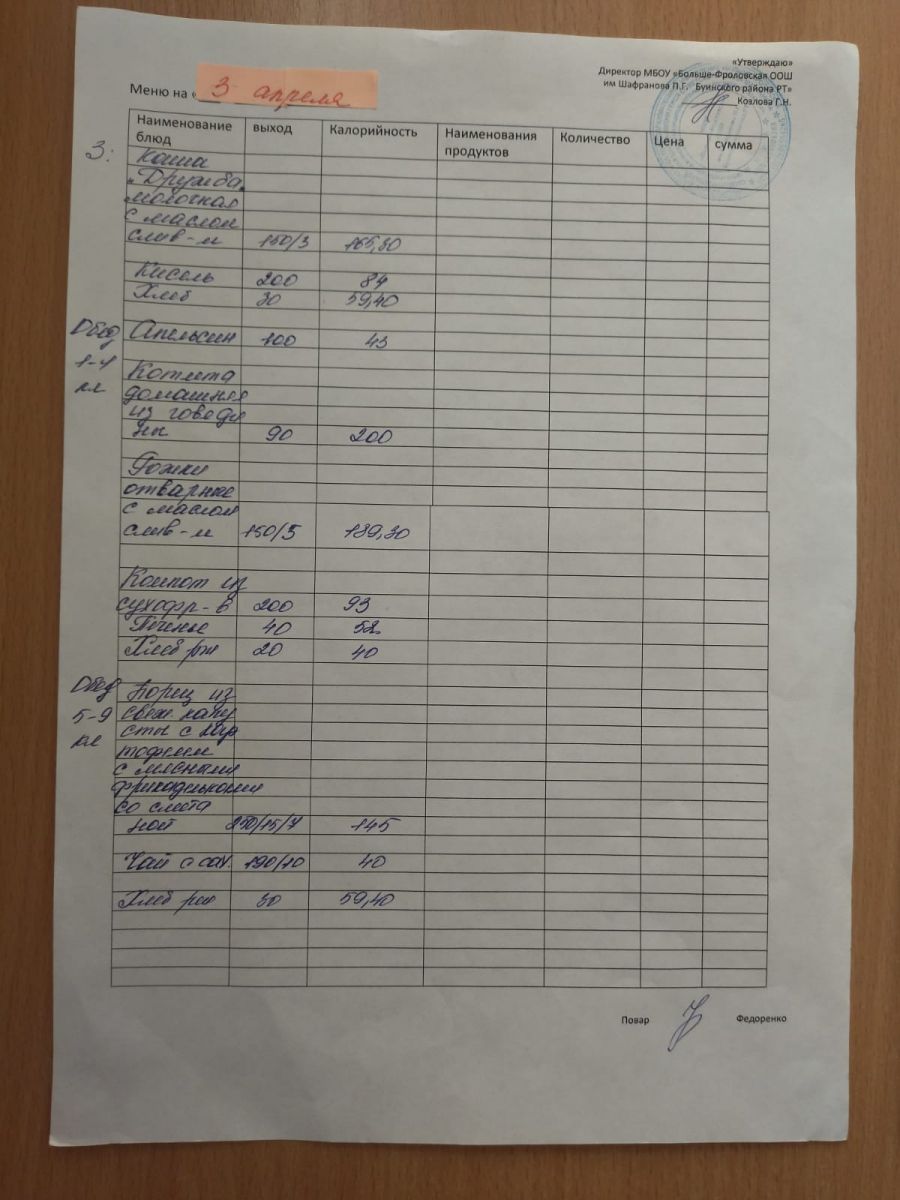 «Утверждаю»
Директор МБОУ «Больше-Фроловская ООШ
им Шафранова П.Г. Буинского района РТ»
Козлова Г.Н.
Меню на « 3 апреля
Наименование блюд выход Калорийность Наименования продуктов Количество Цена сумма
З:
Каша
"Дружба"
молочная
с маслом
слив-м 150/3 165,30
Кисель 200 84
Хлеб 30 59,40
Обед Апельсин 100 43
1-4
кл
Котлета
домашняя
из говяди
ны 90 200
Рожки
отварные
с маслом
слив-м 150/5 139,30
Компот из
сухофр-в 200 93
Печенье 40 52
Хлеб рж 20 40
Обед Борщ из
5-9 свеж капу
кл сты с кар
тофелем
с мясными
фрикадельками
со смета
ной 250/15/7 145
Чай с сах. 190/10 40
Хлеб рж 30 59,40
Повар Федоренко